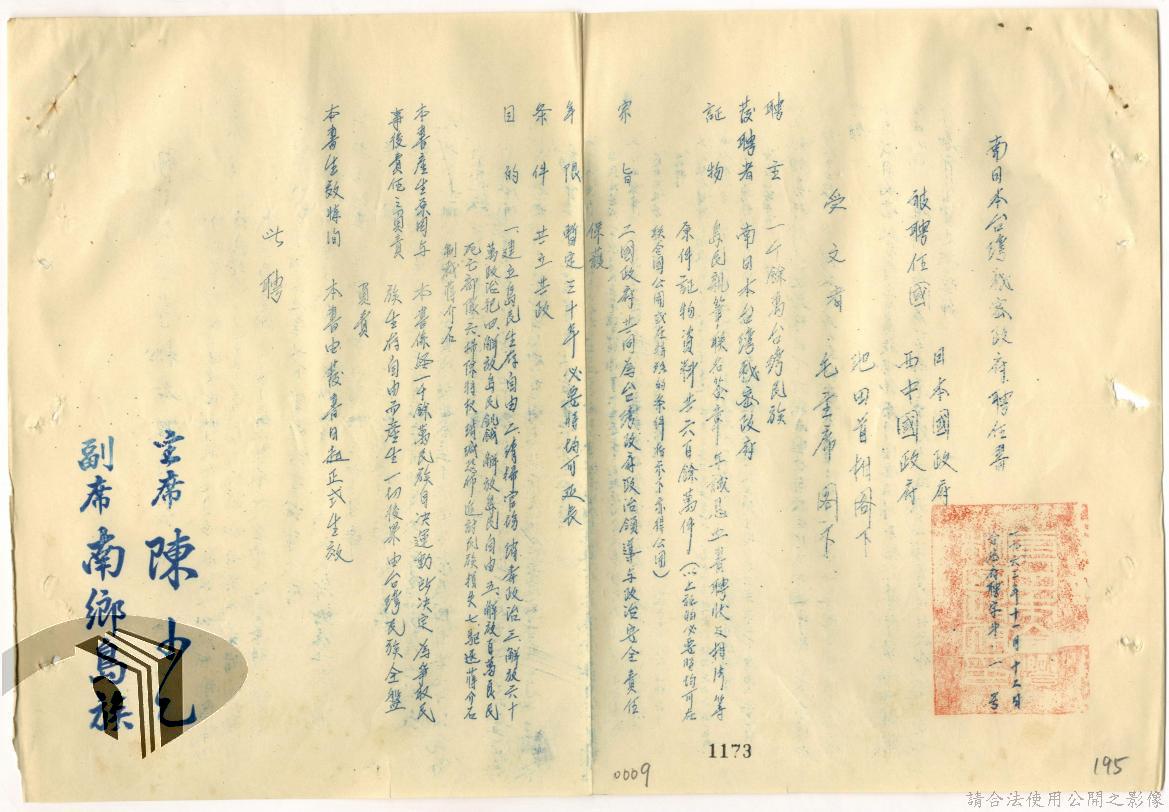 南日本台灣機密政府聘任書
一九六三年十一月十二日
字第一号
被聘任國 日本國政府
西中國政府
池田首相閣下
受文者 毛主席閣下
聘主 一千餘萬台灣民族
發聘者 南日本台灣機密政府
証物 島民親筆联名簽章年誠意上書聘狀及相片等
原件証物資料共六百餘萬件(以上証物必要時均可在
联合國公開或在特殊的条件指示下亦得公開)
宗旨 二國政府共同為台灣政府政治領導与政治安全責任
保護
年限 暫定三十年必要時均可延長
条件 共立共政
目的 一、建立島民生存自由二、清掃官場繒毒政治三、解放六十
萬政治犯四、解放島民飢餓、解放島民自由五、解放百萬良民
死亡部隊六、掃除特務繒緘恐怖追討民族損失七、驅逐蔣介石
制裁蔣介石
本書產生原因与 本書係經一千餘萬民族自決運動所決定為爭取民
事後責任之負責 族生存自由而產生一切後果由台灣民族全盤
負責
本書生效時间 本書由發書日起正式生效
此聘
主席 陳少乙
副席 南鄉島族
1173
0009
195
請合法使用公開之影像